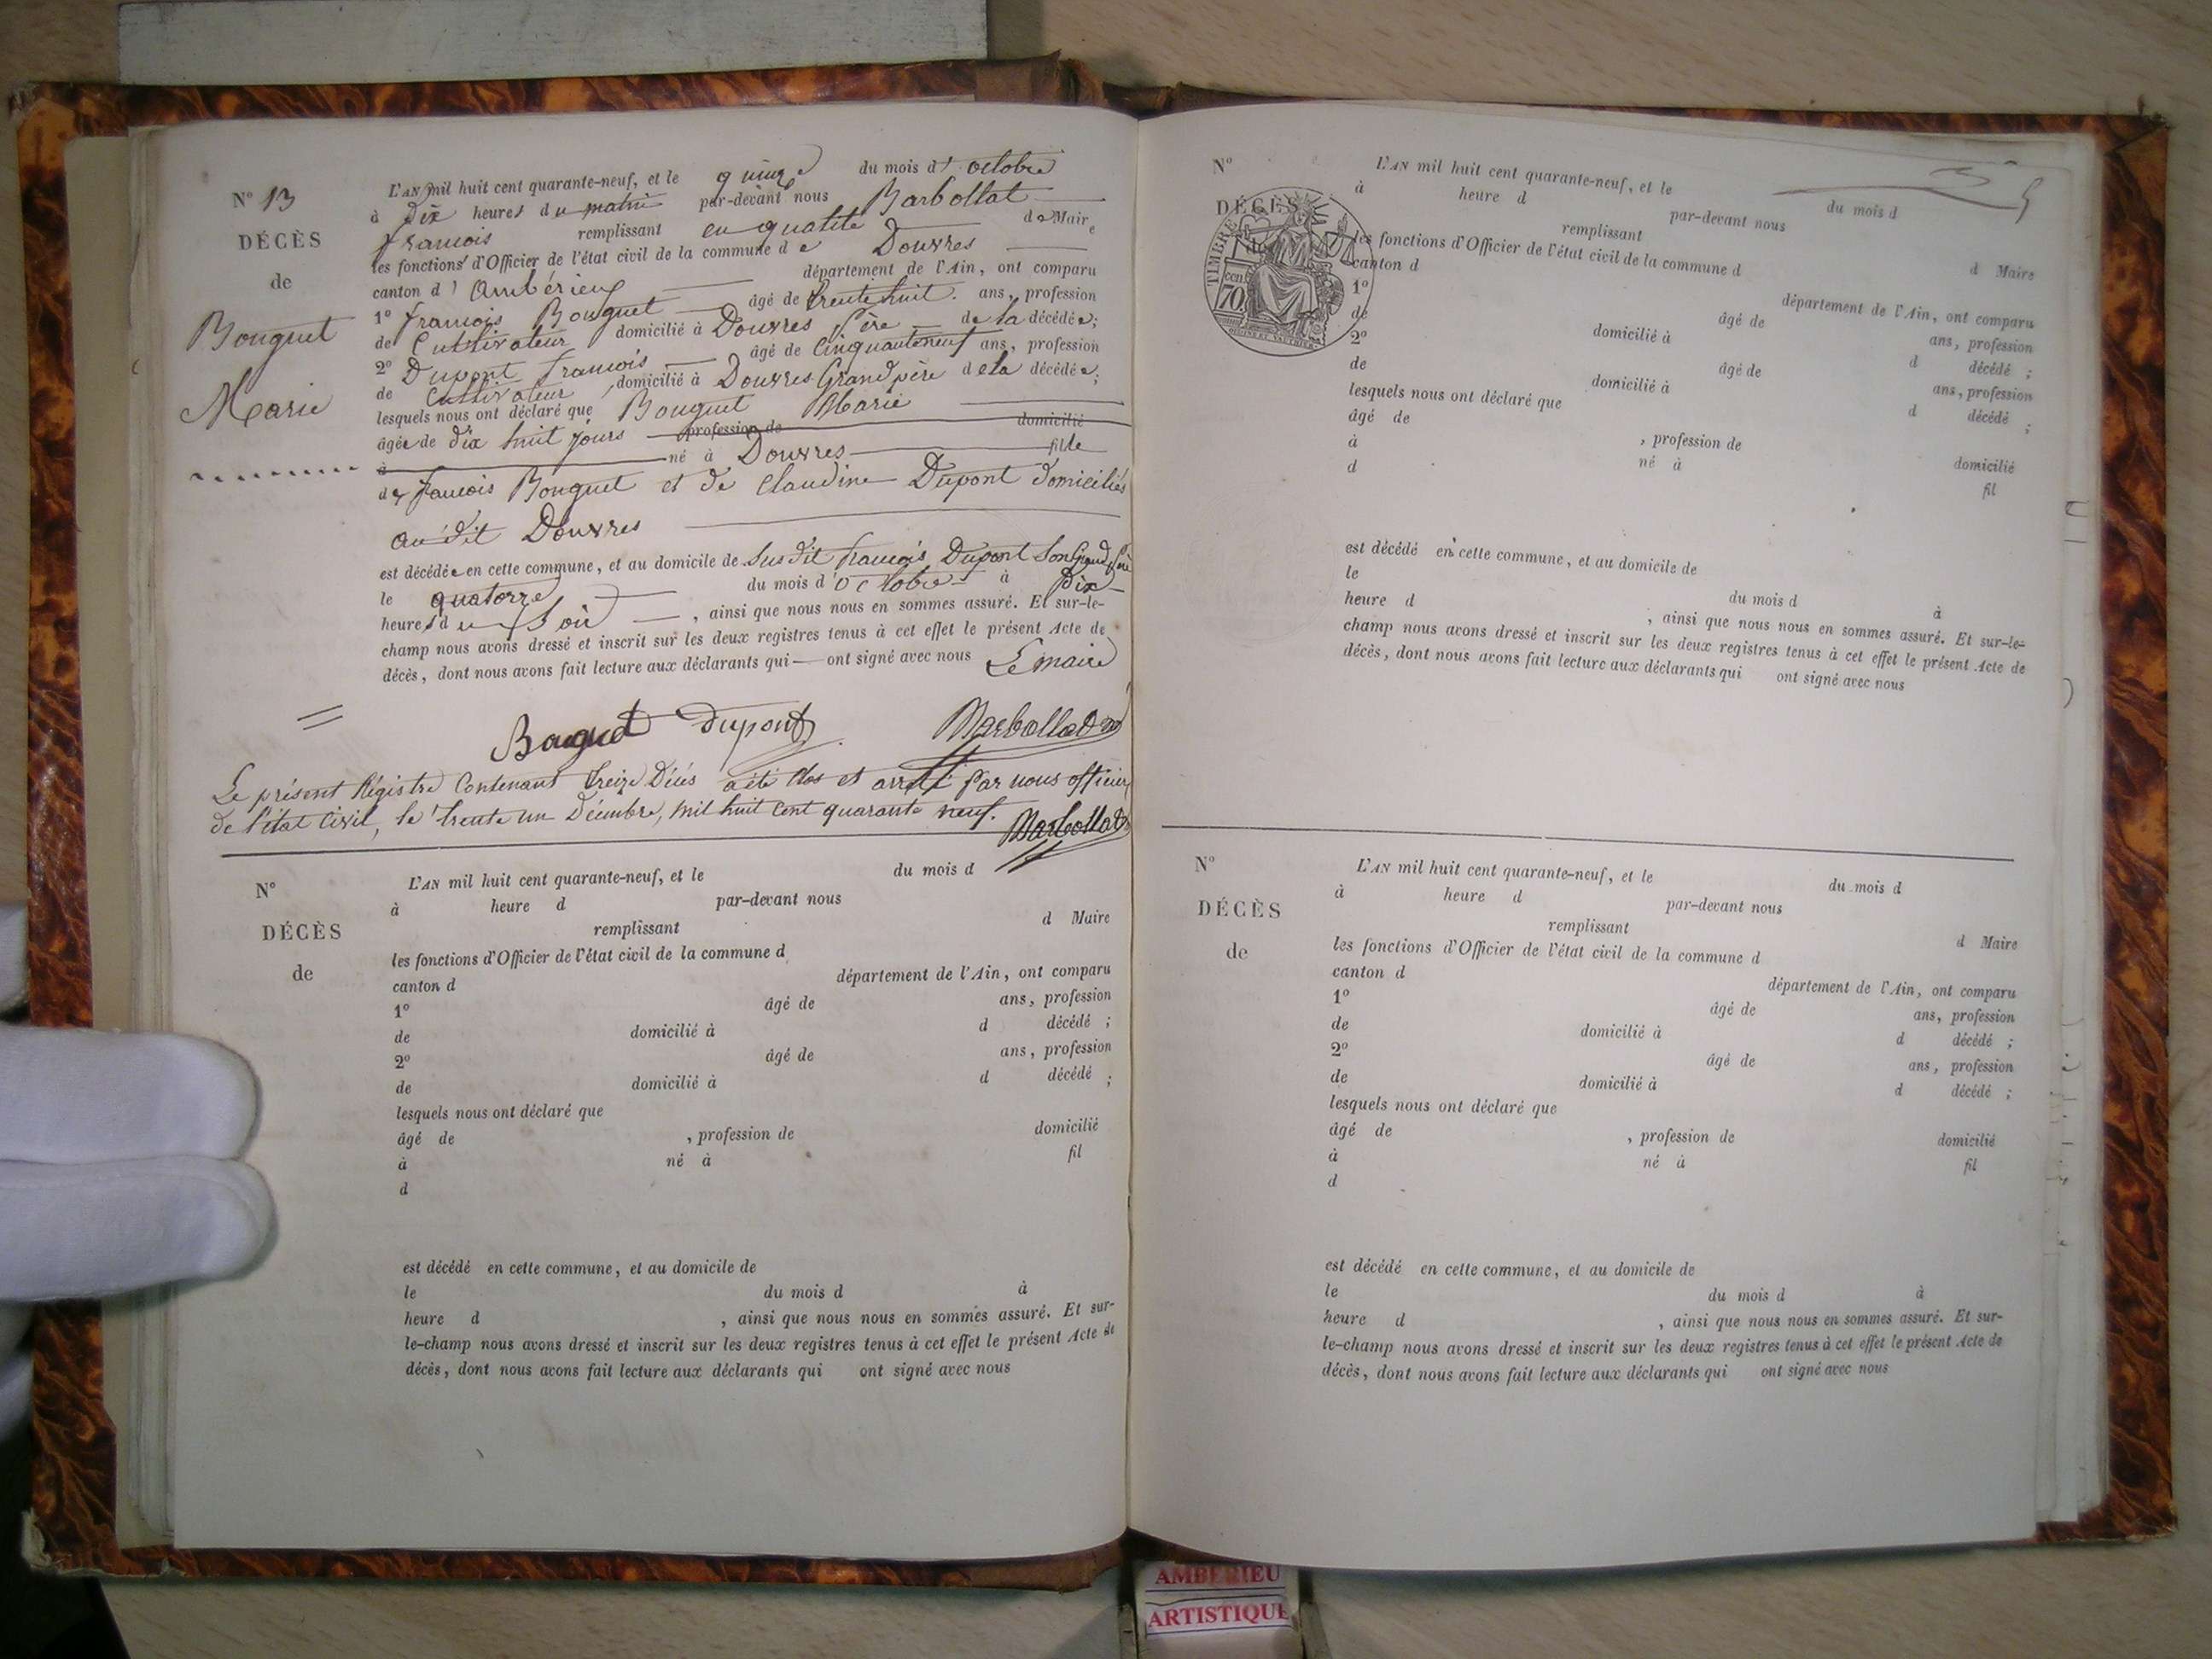 N° 13
DÉCÈS
de
Bouguet
Marie
L'AN mil huit cent quarante-neuf, et le quinze du mois d'octobre
à dix heures du matin par-devant nous Barbollat
francois remplissant en qualité de Maire
les fonctions d'Officier de l'état civil de la commune de Douvres
canton d'Ambérieux département de l'Ain, ont comparu
1° francois Bouguet âgé de trente huit ans, profession
de Cultivateur domicilié à Douvres père de la décédée;
2° Dupont francois âgé de Cinquanteneuf ans, profession
de Cultivateur, domicilié à Douvres Grand père de la décédée;
lesquels nous ont déclaré que Bouguet Marie
âgée de dix huit jours profession de domicilié
à né à Douvres fille
de francois Bouguet et de Claudine Dupont domiciliés
au dit Douvres
est décédée en cette commune, et au domicile de Susdit francois Dupont son Grand Père
le quatorze du mois d'Octobre à dix
heures du Soir, ainsi que nous nous en sommes assuré. Et sur-le-
champ nous avons dressé et inscrit sur les deux registres tenus à cet effet le présent Acte de
décès, dont nous avons fait lecture aux déclarants qui ont signé avec nous Le maire
Bouguet Dupont Barbollat
Le présent Régistre Contenant treize Décès a été clos et arrêté par nous officier
de l'état Civil, le trente un Décembre, mil huit cent quarante neuf. Barbollat
N°
DÉCÈS
de
L'AN mil huit cent quarante-neuf, et le du mois d
à heure d par-devant nous
remplissant d Maire
les fonctions d'Officier de l'état civil de la commune d
canton d département de l'Ain, ont comparu
1° âgé de ans, profession
de domicilié à d décédé ;
2° âgé de ans, profession
de domicilié à d décédé ;
lesquels nous ont déclaré que
âgé de , profession de domicilié
à né à fil
d
est décédé en cette commune, et au domicile de
le du mois d à
heure d , ainsi que nous nous en sommes assuré. Et sur-
le-champ nous avons dressé et inscrit sur les deux registres tenus à cet effet le présent Acte de
décès, dont nous avons fait lecture aux déclarants qui ont signé avec nous
N°
DÉCÈS
TIMBRE
70
L'AN mil huit cent quarante-neuf, et le du mois d
à heure d par-devant nous
remplissant d Maire
les fonctions d'Officier de l'état civil de la commune d
canton d département de l'Ain, ont comparu
1° âgé de ans, profession
de domicilié à d décédé ;
2° âgé de ans, profession
de domicilié à d décédé ;
lesquels nous ont déclaré que
âgé de , profession de domicilié
à né à fil
d
est décédé en cette commune, et au domicile de
le du mois d à
heure d , ainsi que nous nous en sommes assuré. Et sur-le-
champ nous avons dressé et inscrit sur les deux registres tenus à cet effet le présent Acte de
décès, dont nous avons fait lecture aux déclarants qui ont signé avec nous
N°
DÉCÈS
de
L'AN mil huit cent quarante-neuf, et le du mois d
à heure d par-devant nous
remplissant d Maire
les fonctions d'Officier de l'état civil de la commune d
canton d département de l'Ain, ont comparu
1° âgé de ans, profession
de domicilié à d décédé ;
2° âgé de ans, profession
de domicilié à d décédé ;
lesquels nous ont déclaré que
âgé de , profession de domicilié
à né à fil
d
est décédé en cette commune, et au domicile de
le du mois d à
heure d , ainsi que nous nous en sommes assuré. Et sur-
le-champ nous avons dressé et inscrit sur les deux registres tenus à cet effet le présent Acte de
décès, dont nous avons fait lecture aux déclarants qui ont signé avec nous
AMBERIEU
ARTISTIQUE